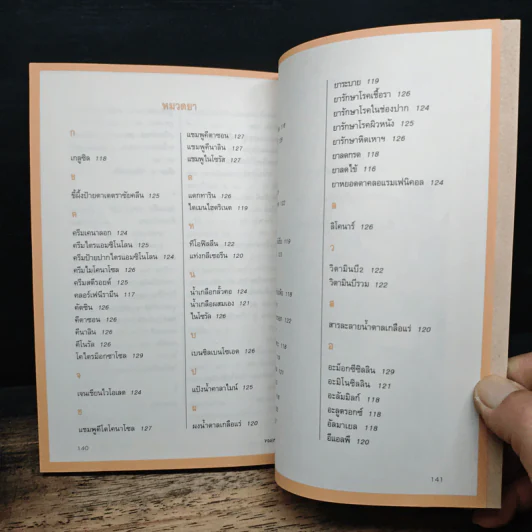 หมวดยา
ก
เกลูซิล 118
ข
ขี้ผึ้งป้ายตาเตตราซัยคลีน 125
ค
ครีมเคนาลอก 124
ครีมไตรแอมซิโนโลน 125
ครีมป้ายปากไตรแอมซิโนโลน 124
ครีมไมโคนาโซล 126
ครีมสตีรอยด์ 125
คลอร์เฟนิรามีน 117
คัดซิน 126
คีตาซอน 126
คีนาลิน 126
คีโนรัล 126
โคไตรม็อกซาโซล 129
จ
เจนเชียนไวโอเลต 124
ช
แชมพูคีโตโคนาโซล 127
แชมพูคีตาซอน 127
แชมพูคีนาลิน 127
แชมพูไนโซรัล 127
ด
แดกทาริน 126
ไดเมนไฮดริเนต 119
ท
ทีโอฟิลลีน 122
แท่งกลีเซอรีน 120
น
น้ำเกลือกลั้วคอ 124
น้ำเกลือผสมเอง 121
ไนโซรัล 126
บ
เบนซิลเบนโซเอต 126
ป
แป้งน้ำคาลาไมน์ 125
ผ
ผงน้ำตาลเกลือแร่ 120
140
ยาระบาย 119
ยารักษาโรคเชื้อรา 126
ยารักษาโรคในช่องปาก 124
ยารักษาโรคผิวหนัง 125
ยารักษาหิดเหาฯ 126
ยาลดกรด 118
ยาลดไข้ 116
ยาหยอดตาคลอแรมเฟนิคอล 124
ล
ลีโคนาร์ 126
ว
วิตามินบี2 122
วิตามินบีรวม 122
ส
สารละลายน้ำตาลเกลือแร่ 120
อ
อะม็อกซีซิลลิน 129
อะมิโนซิลลิน 121
อะลัมมิลก์ 118
อะลูดรอกซ์ 118
อัลมาเยล 118
อีแอลพี 120
141